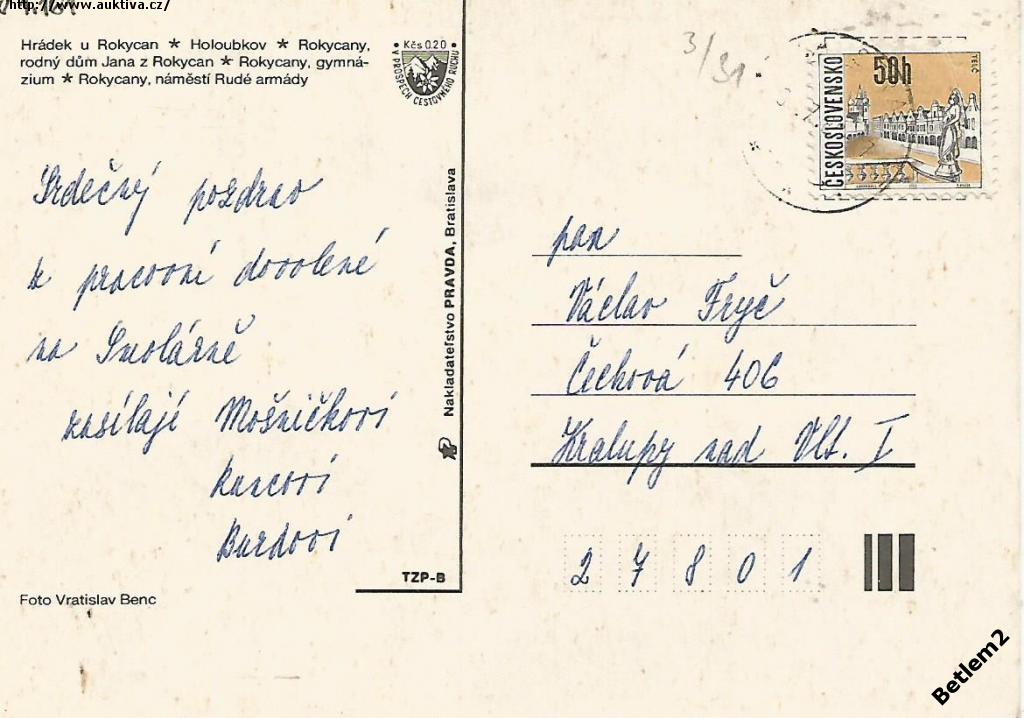 http://www.auktiva.cz/
Hrádek u Rokycan * Holoubkov * Rokycany,
rodný dům Jana z Rokycan * Rokycany, gymná-
zium * Rokycany, náměstí Rudé armády
Kčs 0.20
V PROSPĚCH CESTOVNÉHO RUCHU
Srdečný pozdrav
z pracovní dovolené
na Smolárně
zasílají Mošničkovi
Kuncovi
Burdovi
Foto Vratislav Benc
TZP-B
Nakladateľstvo PRAVDA, Bratislava
3/31
ČESKOSLOVENSKO
50h
TELČ
pan
Václav Fryč
Čechová 406
Kralupy nad Vlt. I
27801
Betlem2